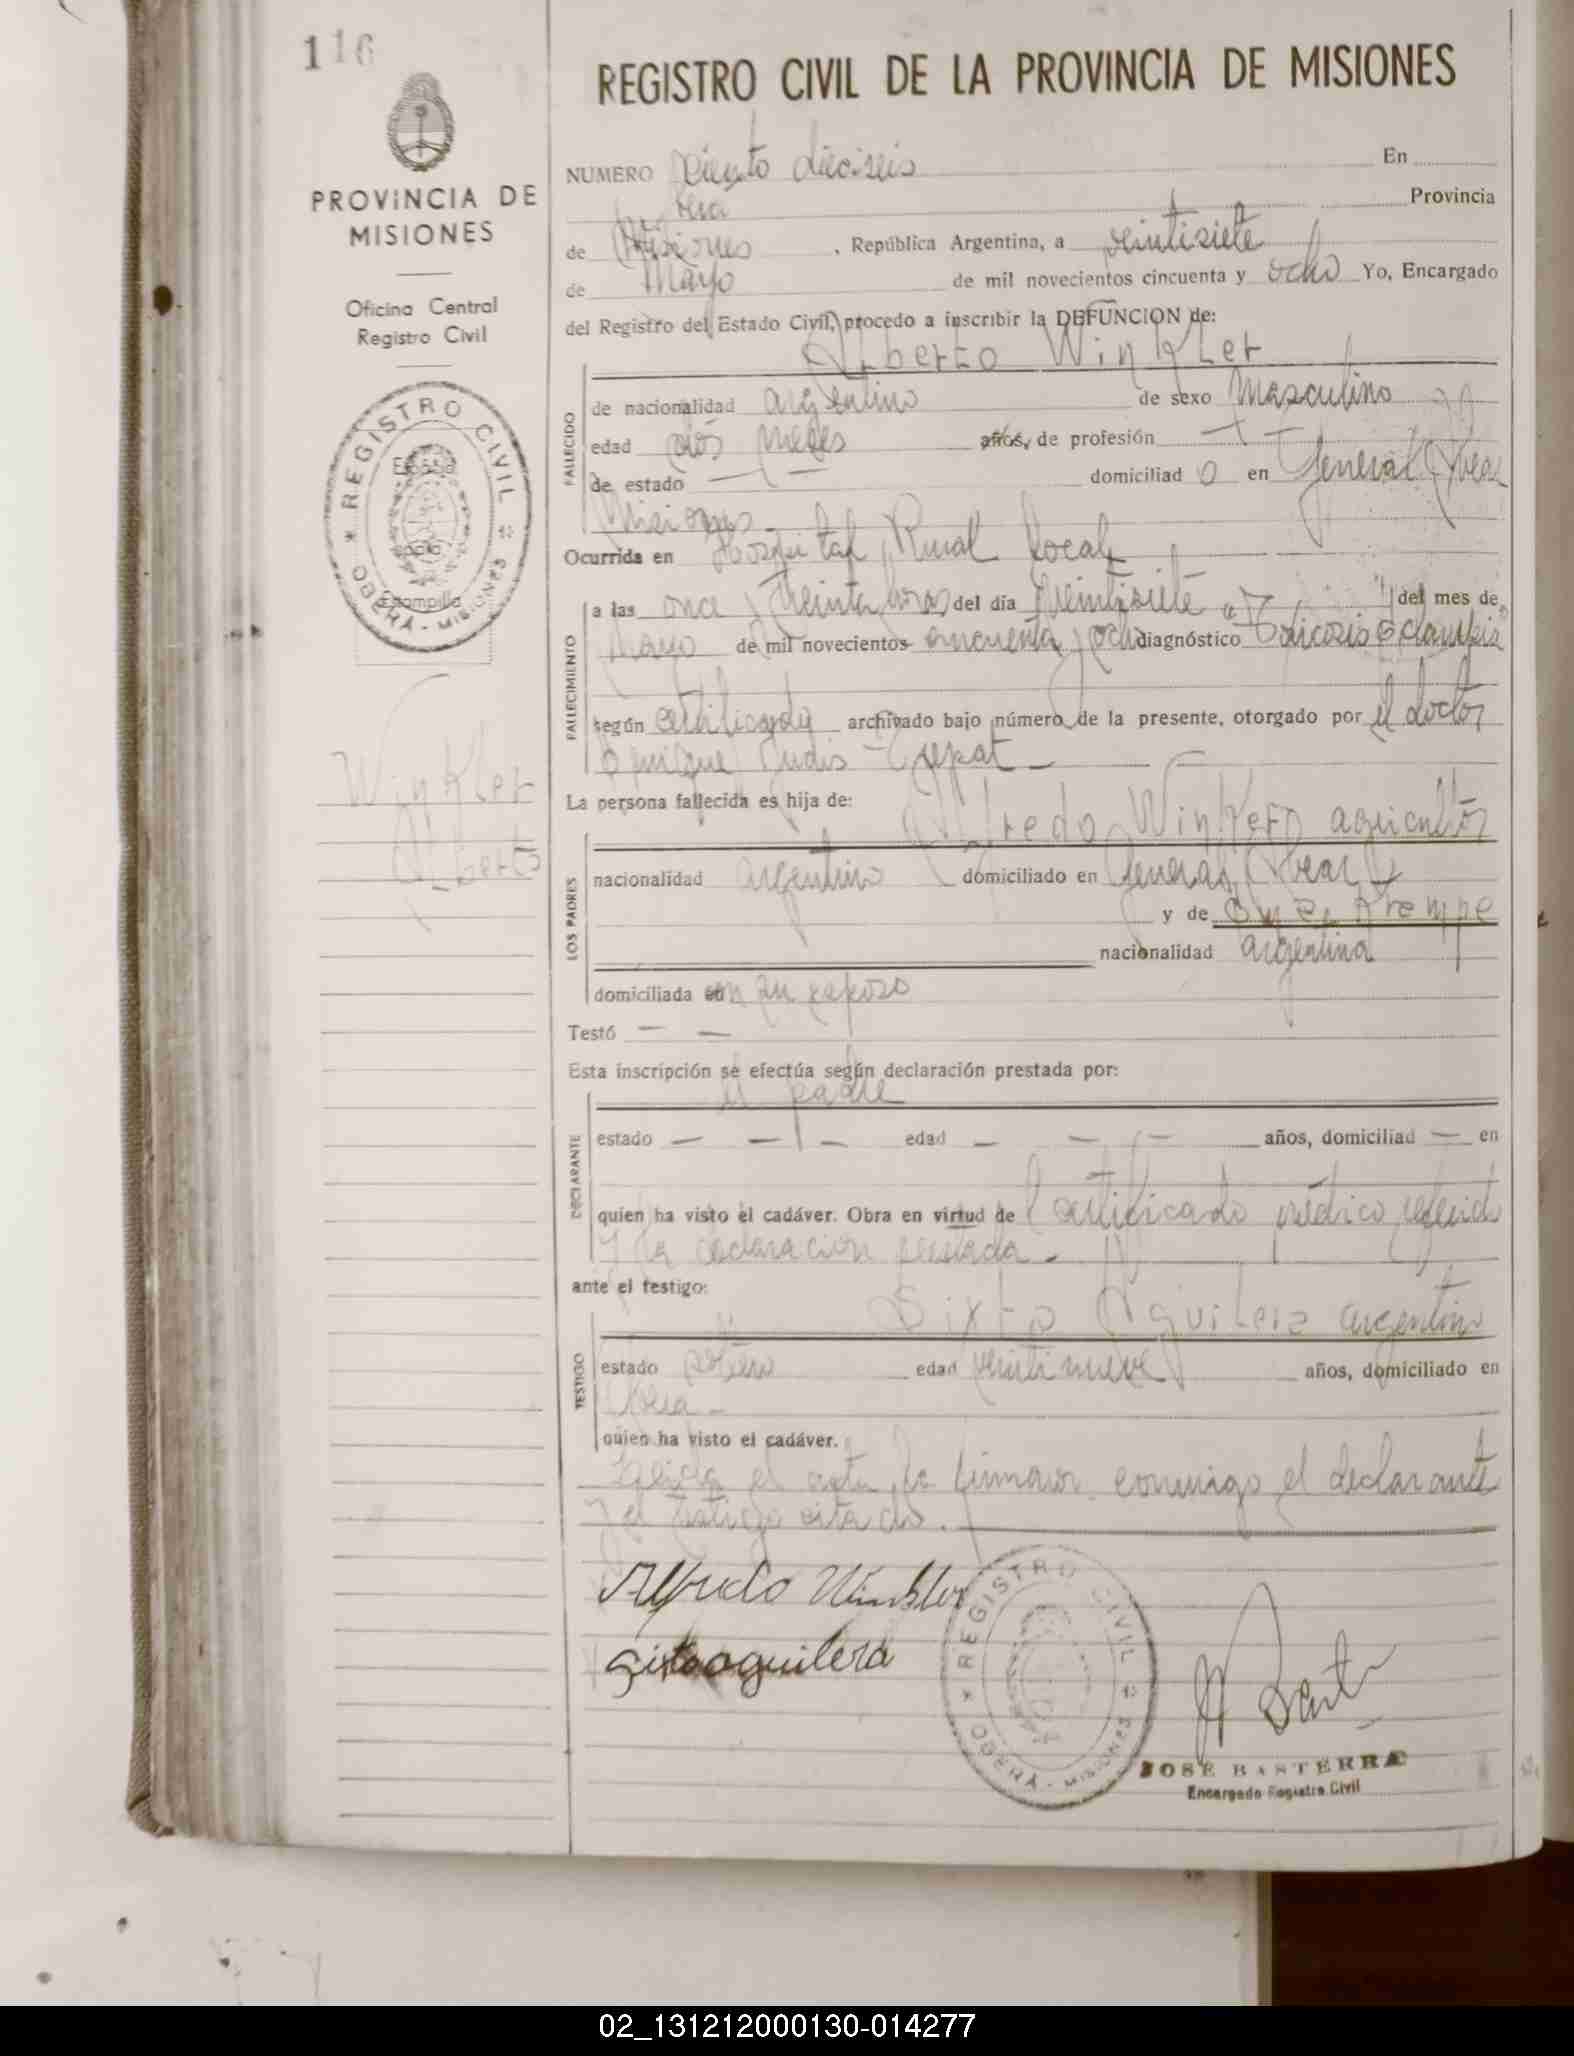 116
PROVINCIA DE
MISIONES
Oficina Central
Registro Civil
REGISTRO CIVIL
OBERÁ - MISIONES
Estampilla
Winkler
Alberto
REGISTRO CIVIL DE LA PROVINCIA DE MISIONES
NUMERO Ciento dieciseis En
Provincia
de Misiones , República Argentina, a veintisiete
de Mayo de mil novecientos cincuenta y ocho Yo, Encargado
del Registro del Estado Civil, procedo a inscribir la DEFUNCION de:
Alberto Winkler
FALLECIDO
de nacionalidad argentino de sexo Masculino
edad dos meses años, de profesión
de estado domiciliad o en General Alvear
Misiones
Ocurrida en Hospital Rural local
FALLECIMIENTO
a las once y treinta horas del día veintisiete "27" del mes de
Mayo de mil novecientos cincuenta y ocho diagnóstico
según certificado archivado bajo número de la presente, otorgado por el doctor
La persona fallecida es hija de:
LOS PADRES
Alfredo Winkler agricultor
nacionalidad argentino domiciliado en General Alvear
y de Krempe
nacionalidad argentina
domiciliada en su esposo
Testó — —
Esta inscripción se efectúa según declaración prestada por:
el padre
DECLARANTE
estado — — — edad — — — años, domiciliad — en
quien ha visto el cadáver. Obra en virtud de certificado médico referido
y la declaración prestada.-
ante el testigo:
Sixto Aguilera argentino
TESTIGO
estado soltero edad veintinueve años, domiciliado en
quien ha visto el cadáver.
Leida el acta la firmaron conmigo el declarante
y el testigo citado.
Alfredo Winkler
Sixto aguilera
REGISTRO CIVIL
OBERÁ - MISIONES
JOSE BASTERRA
Encargado Registro Civil
02_131212000130-014277